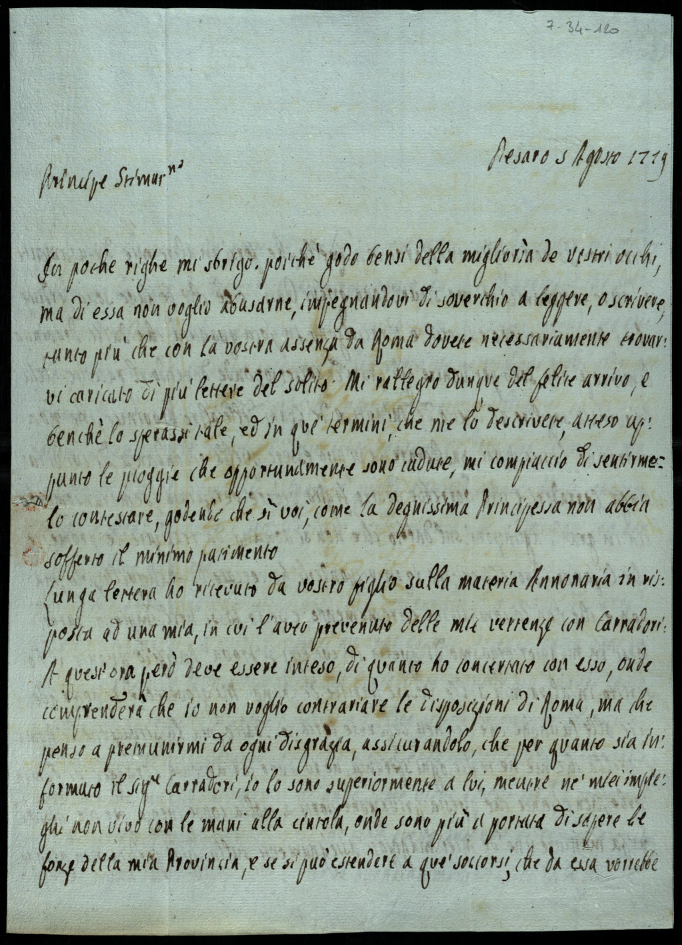 7-34-120
Pesaro 5 Agosto 1779
Principe Stimat.mo
In poche righe mi sbrigo, poichè godo bensì della miglioria de vostri occhi,
ma di essa non voglio abusarne, impegnandovi di soverchio a leggere, o scrivere,
tanto più che con la vostra assenza da Roma dovete necessariamente trovar-
vi caricato di più lettere del solito. Mi rallegro dunque del felice arrivo, e
benchè lo sperassi tale, ed in que' termini, che me lo descrivete, atteso ap:
punto le pioggie che opportunamente sono cadute, mi compiaccio di sentirme=
lo contestare, godendo che sì voi, come la degnissima Principessa non abbia
sofferto il minimo patimento
Lunga lettera ho ricevuto da vostro figlio sulla materia Annonaria in ris:
posta ad una mia, in cui l'avea prevenuto delle mie vertenze con Carradori.
A quest'ora però deve essere inteso, di quanto ho concertato con esso, onde
comprenderà che io non voglio contrariare le disposizioni di Roma, ma che
penso a premunirmi da ogni disgrazia, assicurandolo, che per quanto sia in:
formato il Sig.r Carradori, io lo sono superiormente a lui, mentre ne' miei impie:
ghi non vivo con le mani alla cintola, onde sono più a portata di sapere le
forze della mia Provincia, e se si può estendere a que' soccorsi, che da essa vorrebbe